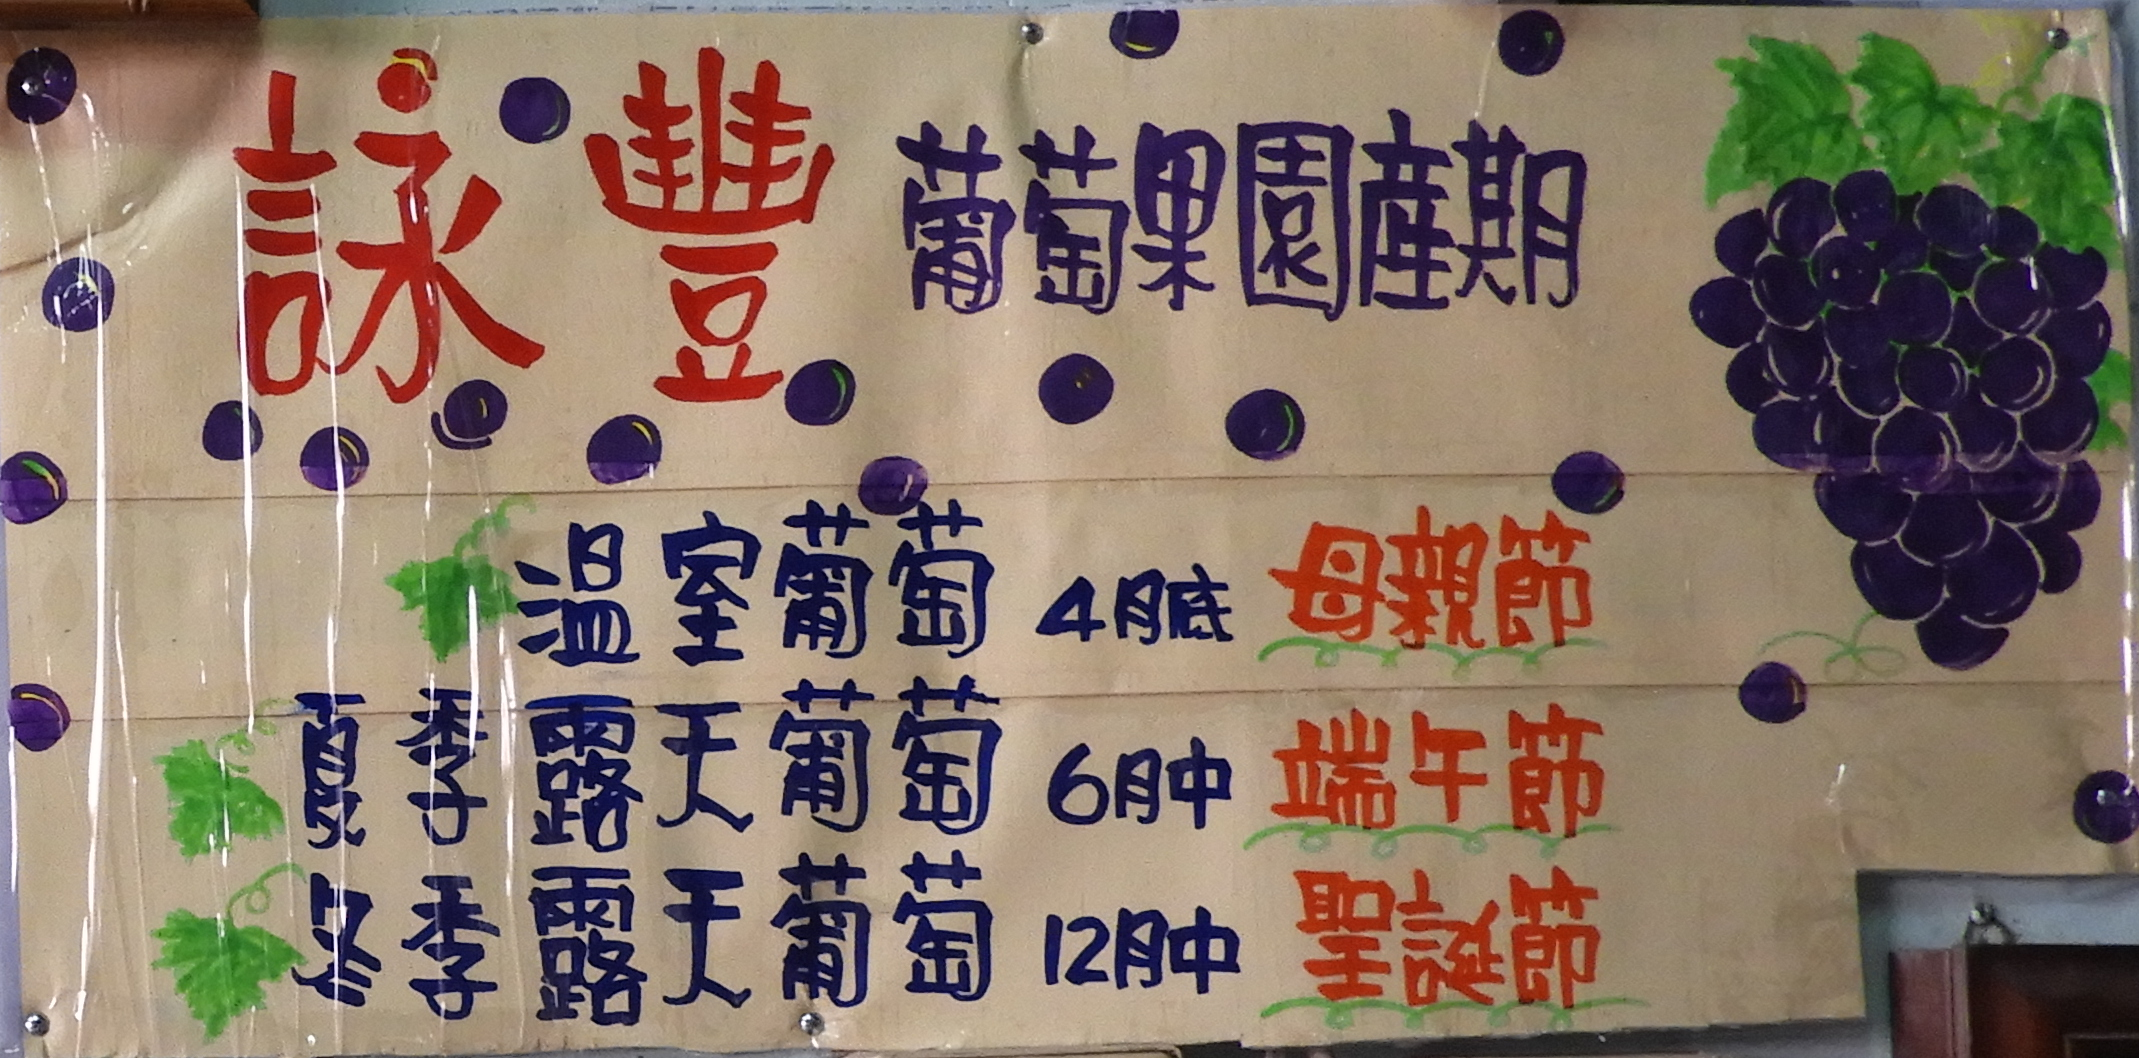 詠豐 葡萄果園産期
溫室葡萄 4月底 母親節
夏季露天葡萄 6月中 端午節
冬季露天葡萄 12月中 聖誕節